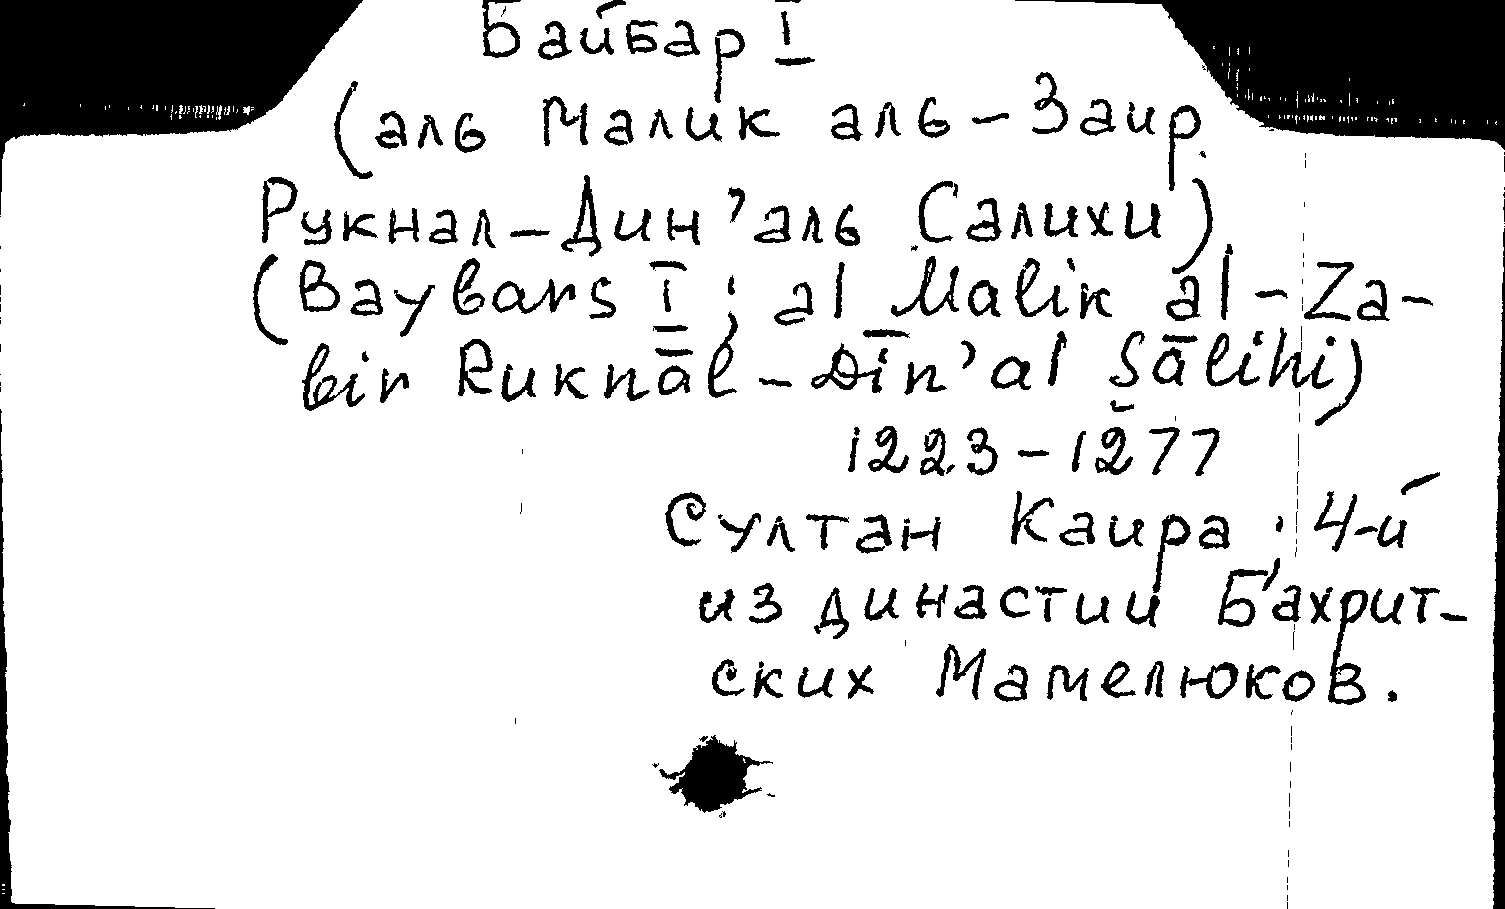 Байбар I
(аль Малик аль-Заир
Рукнал-Дин'аль Салихи)
(Baybars I; al Malik al-Za-
bir Ruknāl-Dīn'al Sālihi)
1223-1277
Султан Каира. 4-й
из династии Бахрит-
ских Мамелюков.